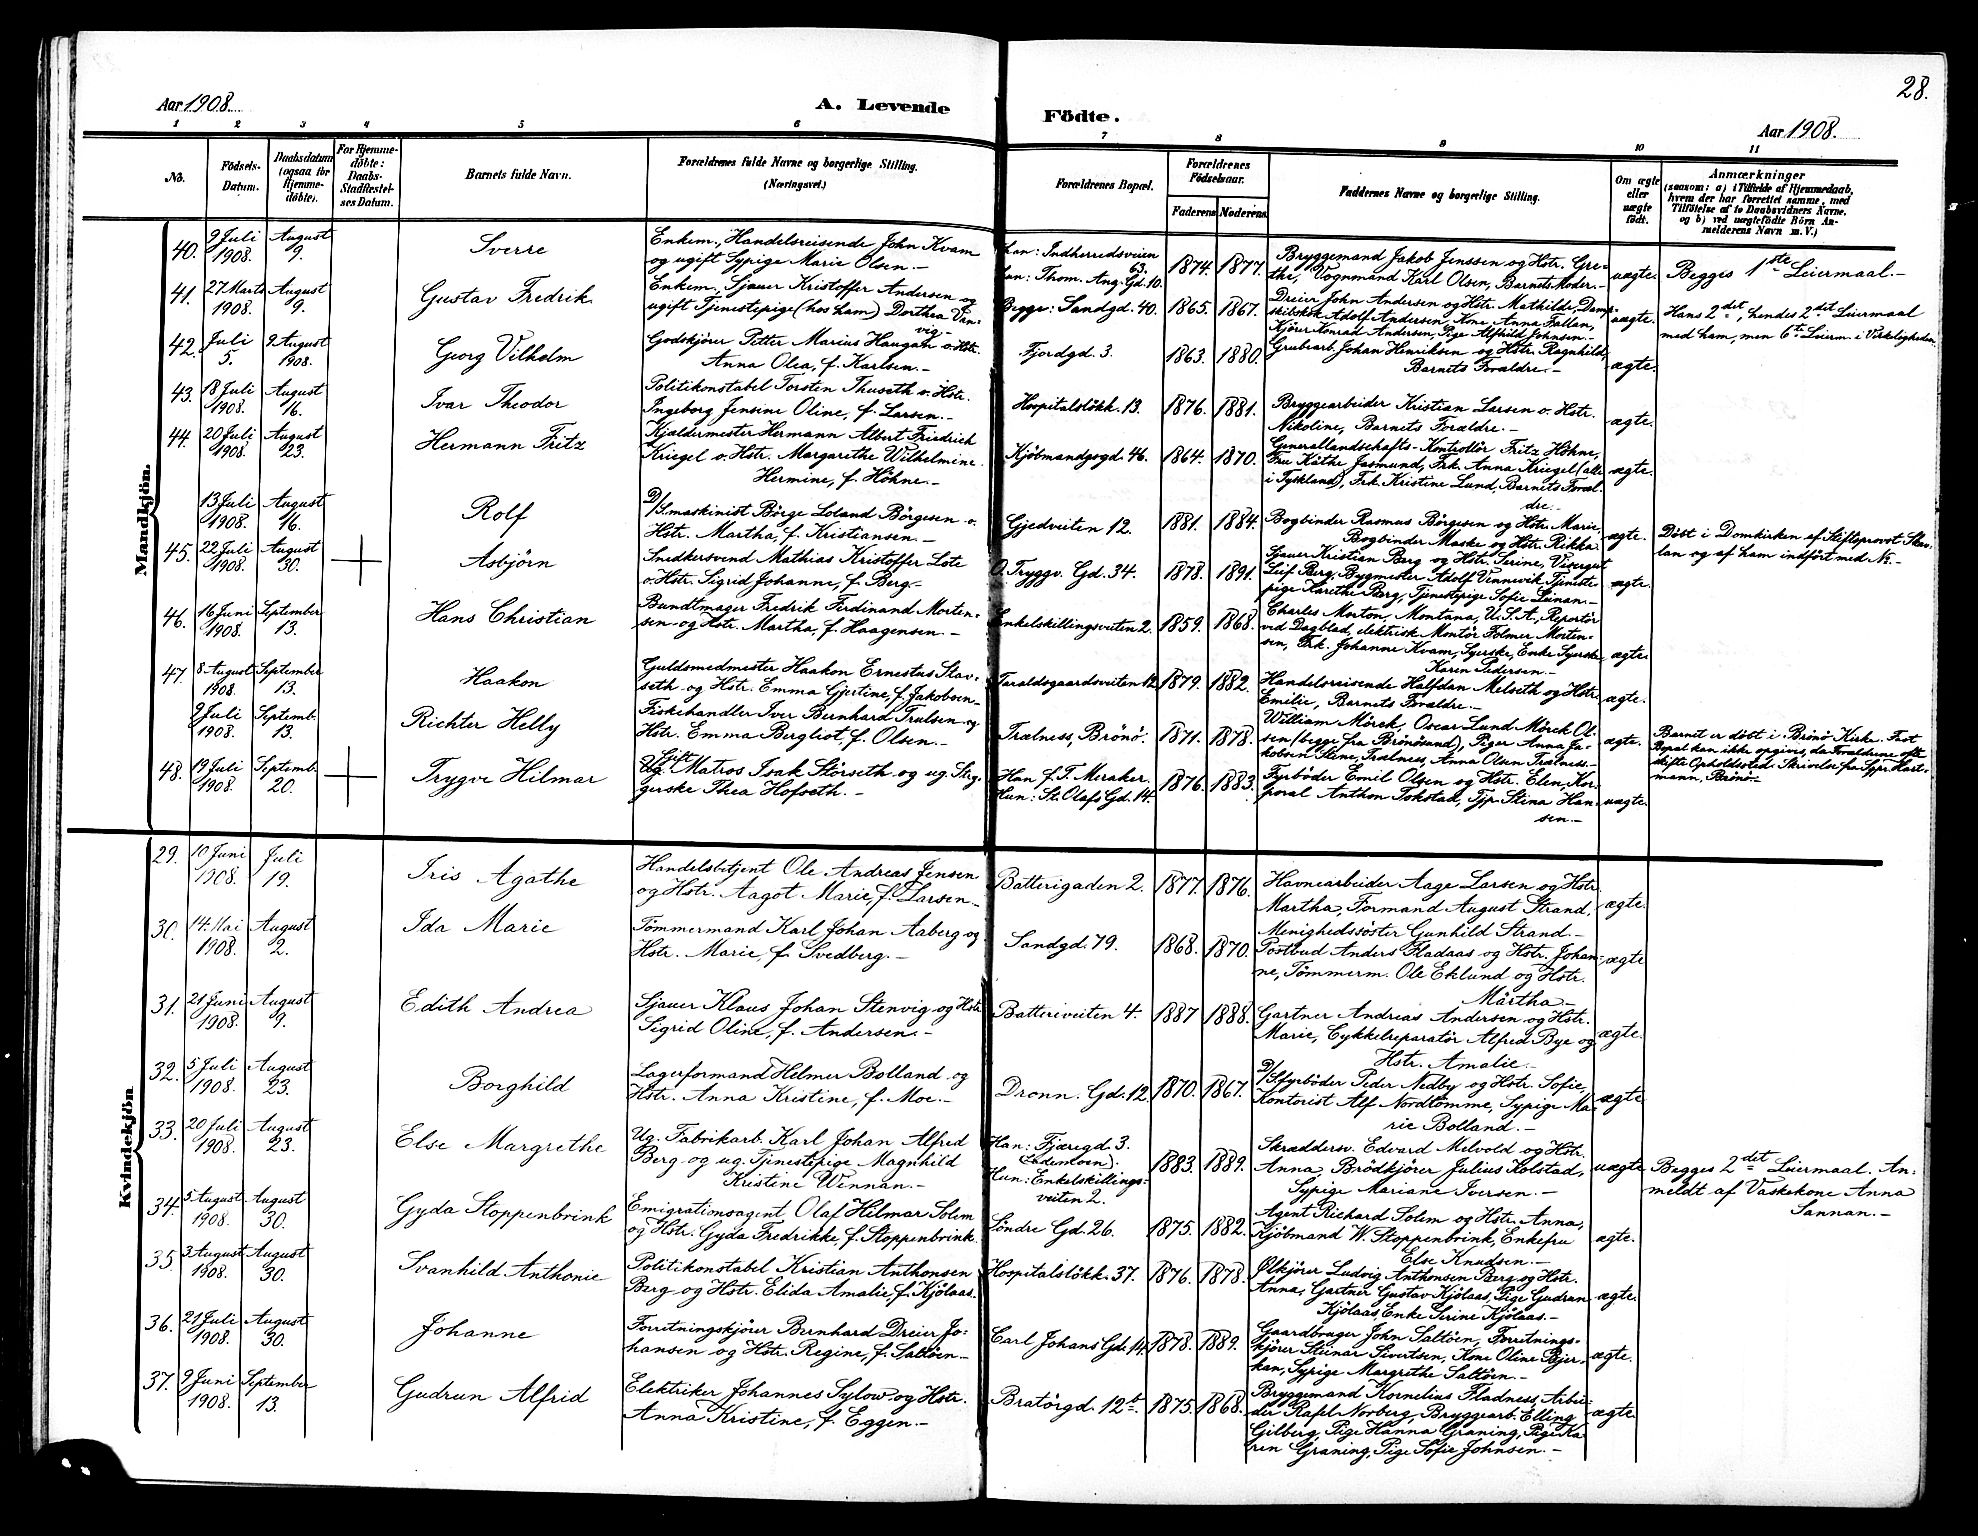 28.
Aar 1908.
A. Levende Födte.
Aar 1908.
1 2 3 4 5 6 7 8 9 10 11
No.
Födsels-
Datum.
Daabsdatum
(ogsaa for
Hjemme-
döbte).
For Hjemme-
döbte:
Daabs-
Stadfæstel-
ses Datum.
Barnets fulde Navn.
Forældrenes fulde Navne og borgerlige Stilling.
(Næringsvei.)
Forældrenes Bopæl.
Forældrenes
Födselsaar.
Faderens Moderens.
Faddernes Navne og borgerlige Stilling.
Om ægte
eller
uægte
födt.
Anmærkninger
(saasom: a) i Tilfælde af Hjemmedaab,
hvem der har forrettet samme, med
Tilföielse af to Daabsvidners Navne,
og b) ved uægtefödte Börn An-
melderens Navn m. V.)
Mandkjön.
40.
2 Juli
1908.
August
9.
Sverre
Enkem., Handelsreisende John Kvam
og ugift Sypige Marie Olsen.-
Han: Indherredsveien
63.
Hun: Thom. Ang. Gd. 10.
1874. 1877.
Bryggemand Jakob Jenssen og Hstr. Gre-
the, Vognmand Karl Olsen, Barnets Moder.-
uægte.
Begges 1ste Leiermaal.-
41.
27 Marts
1908.
August
9.
Gustav Fredrik
Enkem., Sjauer Kristoffer Andersen og
ugift Tjenestepige (hos ham) Dorthea Van-
vig.-
Begge: Sandgd. 40.
1865. 1867.
Dreier John Andersen og Hstr. Mathilde, Damp-
skibskok Adolf Andersen, Kone Anna Fallan,
Kjörer Konrad Andersen, Pige Alfhild Johnsen.-
uægte.
Hans 2det, hendes 2det Leiermaal
med ham, men 6te Leierm. i Virkeligheden.
42.
Juli
5.
2 August
1908.
Georg Vilhelm
Godskjörer Petter Marius Haugan o. Hstr.
Anna Olea, f. Karlsen.-
Fjordgd. 3.
1863. 1880.
Grubearb. Johan Henriksen og Hstr. Ragnhild,
Barnets Forældre.-
ægte.
43.
18 Juli
1908.
August
16.
Ivar Theodor
Politikonstabel Torsten Thuseth o. Hstr.
Ingeborg Jensine Oline, f. Larsen.-
Hospitalslökk. 13.
1876. 1881.
Bryggearbeider Kristian Larsen o. Hstr.
Nikoline, Barnets Forældre.-
ægte.
44.
20 Juli
1908.
August
23.
Hermann Fritz
Kjældermester Hermann Albert Friedrich
Kriegel o. Hstr. Margarethe Wilhelmine
Hermine, f. Höhne.-
Kjöbmandsgd. 46.
1864. 1870.
Generallandschafts-Kontrollör Fritz Höhne,
Fru Käthe Jasmund, Frk. Anna Kriegel (alle
i Tyskland), Frk. Kristine Lund, Barnets Foræl-
dre.-
ægte.
13 Juli
1908.
August
16.
Rolf
D/S.maskinist Börge Loland Börgesen o.
Hstr. Martha, f. Kristiansen.-
Gjedveiten 12.
1881. 1884.
Bogbinder Rasmus Börgesen og Hstr. Marie,
Bogbinder Maske og Hstr. Rikka.
ægte.
Döbt i Domkirken af Stiftsprovst
og af ham indfört med No.-
45.
22 Juli
1908.
August
30.
Asbjörn
Snedkersvend Mathias Kristoffer Löte
o. Hstr. Sigrid Johanne, f. Berg.-
O. Tryggv. Gd. 34.
1878. 1891.
Sjauer Kristian Berg og Hstr. Serine, Visergut
Leif Berg, Bygmester Adolf Vennevik, Tjeneste-
pige Karethe Berg, Tjenestepige Sofie Leinan.-
ægte.
46.
16 Juni
1908.
September
13.
Hans Christian
Bundtmager Fredrik Ferdinand Morten-
sen og Hstr. Martha, f. Haagensen.-
Enkelskillingsveiten 2.
1859. 1868.
Charles Morton, Montana, U.S.A., Reportör
ved Dagblad, elektrisk Montör Folmer Morten-
sen, Frk. Johanne Kvam, Syerske, Enke Syerske
Karen Pedersen.-
ægte.
47.
8 August
1908.
September
13.
Haakon
Guldsmedmester Haakon Ernestus Stav-
seth og Hstr. Emma Gjertine, f. Jakobsen.-
Taraldsgaardsveiten 12.
1879. 1882.
Handelsreisende Halfdan Melseth og Hstr.
Emilie, Barnets Forældre.-
ægte.
2 Juli
1908.
Septemb.
13.
Richter Helly
Fiskehandler Iver Bernhard Trulsen og
Hstr. Emma Bergliot, f. Olsen.-
Trælness, Brönö.
1871. 1878.
William Mörck, Oscar Lund Mörck Ol-
sen (begge fra Brönösund), Piger Anna Ja-
kobsen Stene, Trælness, Anna Olsen Trælness.-
ægte.
Barnet er döbt i Brönö Kirke. Fast
Bopæl kan ikke opgives, da Forældrene ofte
skifte Opholdssted. Skrivelse fra Sgpr. Hart-
mann, Brönö.
48.
19 Juli
1908.
Septemb.
20.
Trygve Hilmar
Ug. Matros Isak Störseth og ug.
Thea Hofseth.-
Han f. T. Meraker.
Hun: St. Olafs Gd. 14.
1876. 1883.
Fyrböder Emil Olsen og Hstr. Elen, Kor-
poral Anthon Tokstad, Tjp. Stina Han-
sen.-
uægte.
Kvindekjön
29.
10 Juni
1908.
Juli
19.
Iris Agathe
Handelsbetjent Ole Andreas Jensen
og Hstr. Aagot Marie, f. Larsen.-
Batterigaden 2.
1877. 1876.
Havnearbeider Aage Larsen og Hstr.
Martha, Formand August Strand,
Menighedssöster Gunhild Strand.-
ægte.
30.
14. Mai
1908.
August
2.
Ida Marie
Tömmermand Karl Johan Aaberg og
Hstr. Marie, f. Svedberg.-
Sandgd. 79.
1868. 1870.
Postbud Anders Fladaas og Hstr. Johan-
ne, Tömmerm. Ole Eklund og Hstr.
Märtha.-
ægte
31.
21 Juni
1908.
August
9.
Edith Andrea
Sjauer Klaus Johan Stenvig og Hstr.
Sigrid Oline, f. Andersen.-
Batteriveiten 4.
1887 1888.
Gartner Andreas Andersen og Hstr.
Marie, Cykkelreparatör Alfred Bye og
Hstr. Amalie.-
ægte.
32.
5 Juli
1908.
August
23.
Borghild
Lagerformand Helmer Bolland og
Hstr. Anna Kristine, f. Moe.-
Dronn. Gd. 12
1870. 1867.
D/S.fyrböder Peder Nedby og Hstr. Sofie,
Kontorist Alf Nordtömme, Sypige Ma-
rie Bolland.-
ægte
33.
20 Juli
1908.
August
23.
Else Margrethe
Ug. Fabrikarb. Karl Johan Alfred
Berg og ug. Tjenestepige Magnhild
Kristine Wennan.-
Han: Fjæregd. 3.
(Lademoen).
Hun: Enkelskillings-
veiten 2.
1883. 1889.
Skræddersv. Edvard Melvold og Hstr.
Anna, Brödkjörer Julius Kolstad,
Sypige Mariane Iversen.-
uægte
Begges 2det Leiermaal. An-
meldt af Vaskekone Anna
Sannan.-
34.
5 August
1908.
August
30.
Gyda Stoppenbrink
Emigrationsagent Olaf Helmar Solem
og Hstr. Gyda Fredrikke, f. Stoppenbrink.
Söndre Gd. 26.
1875. 1882.
Agent Richard Solem og Hstr. Anna,
Kjöbmand W. Stoppenbrink, Enkefru
Else Knudsen.-
ægte.
35.
3 August
1908.
August
30.
Svanhild Anthonie
Politikonstabel Kristian Anthonsen
Berg og Hstr. Elida Amalie, f. Kjölaas.
Hospitalslökk. 37.
1876. 1878.
Ølkjörer Ludvig Anthonsen Berg og Hstr.
Anna, Gartner Gustav Kjölaas, Pige Gudrun
Kjölaas, Enke Serine Kjölaas.-
ægte.
36.
21 Juli
1908.
August
30.
Johanne
Forretningskjörer Bernhard Dreier Jo-
hansen og Hstr. Regine, f. Saltöen.-
Carl Johans Gd. 14.
1878. 1889.
Gaardbruger John Saltöen, Forretnings-
kjörer Steinar Sivertsen, Kone Oline Bjer-
kan, Sypige Margrethe Saltöen.-
ægte.
37.
2 Juni
1908.
September
13.
Gudrun Alfrid
Elektriker Johannes Sylow og Hstr.
Anna Kristine, f. Eggen.-
Bratörgd. 12
1875. 1868.
Bryggemand Kornelius Fladness, Arbei-
der Rafel Norberg, Bryggearb. Elling
Gilberg, Pige Hanna Graning, Pige Ka-
ren Graning, Pige Sofie Johnsen.-
ægte.